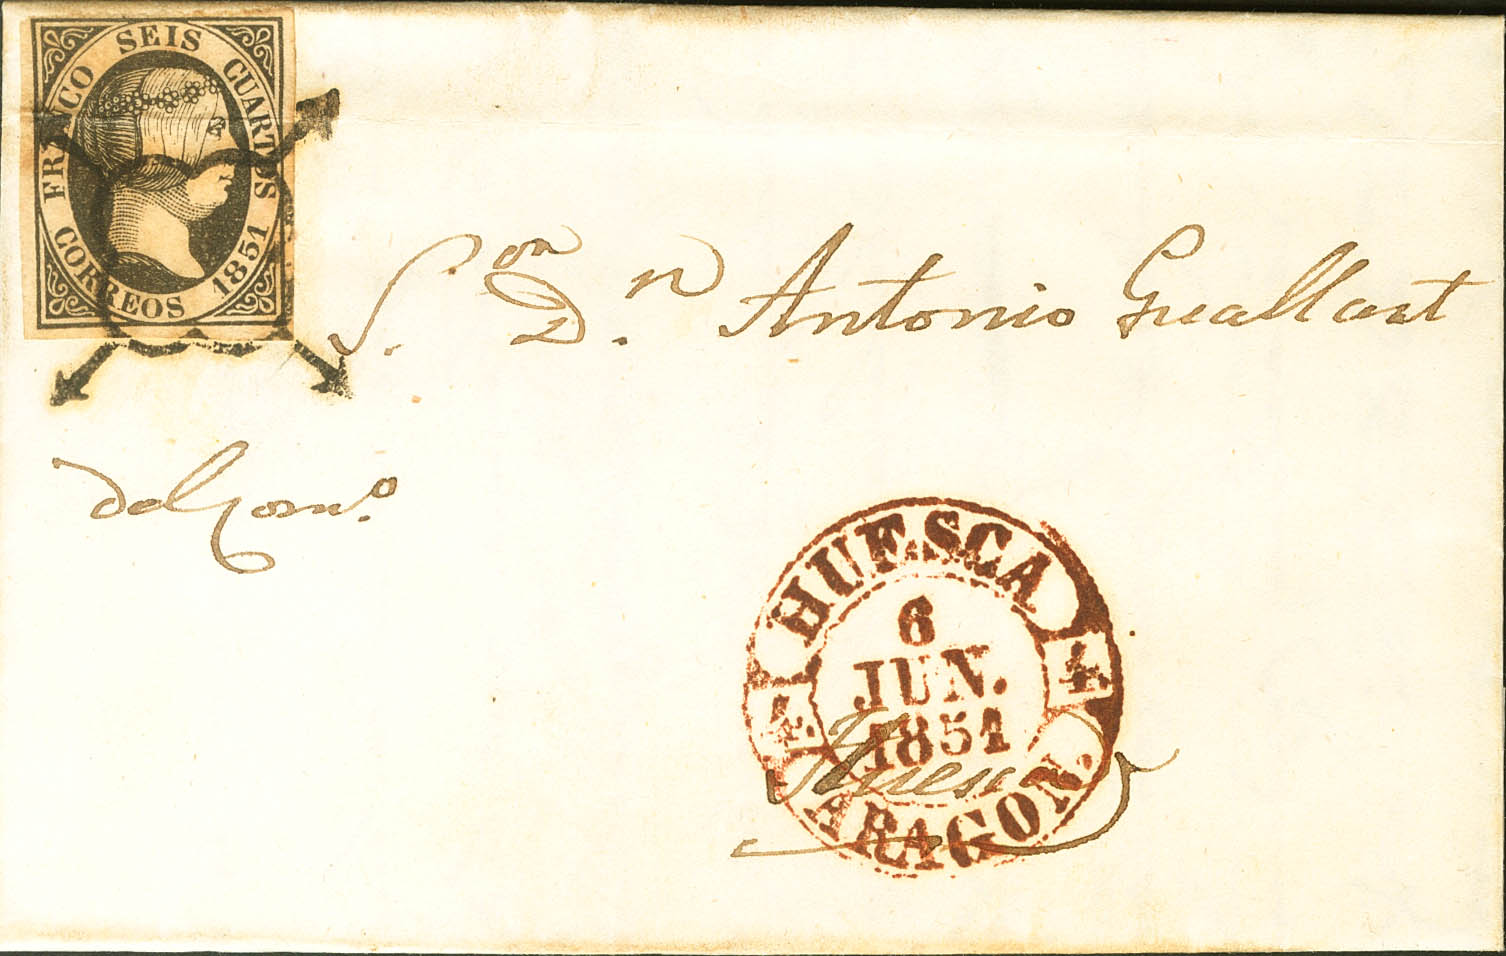 FRANCO SEIS CUARTOS
CORREOS 1851
S.on D.n Antonio Guallart
del Com.o
HUESCA
4 4
6
JUN.
1851
Huesca
ARAGON.